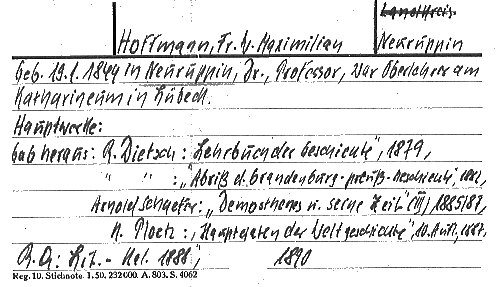 Landkreis
Hoffmann, Fr. W. Maximilian
Neuruppin
Geb. 19.1.1844 in Neuruppin, Dr., Professor, war Oberlehrer am
Katharineum in Lübeck.
Hauptwerke:
Gab heraus: R. Dietsch: „Lehrbuch der Geschichte", 1879,
" " : „Abriß d. brandenburg-preuß. Geschichte",
Arnold Schaefer: „Demosthenes u. seine Zeit" (III) 1885/87,
K. Ploetz: „Hauptdaten der Weltgeschichte", 10. Aufl., 1887.
R. Q: Lit. - Kal. 1888, 1890
Reg. 10. Stichnote. 1. 50. 232000. A. 803. S. 4062